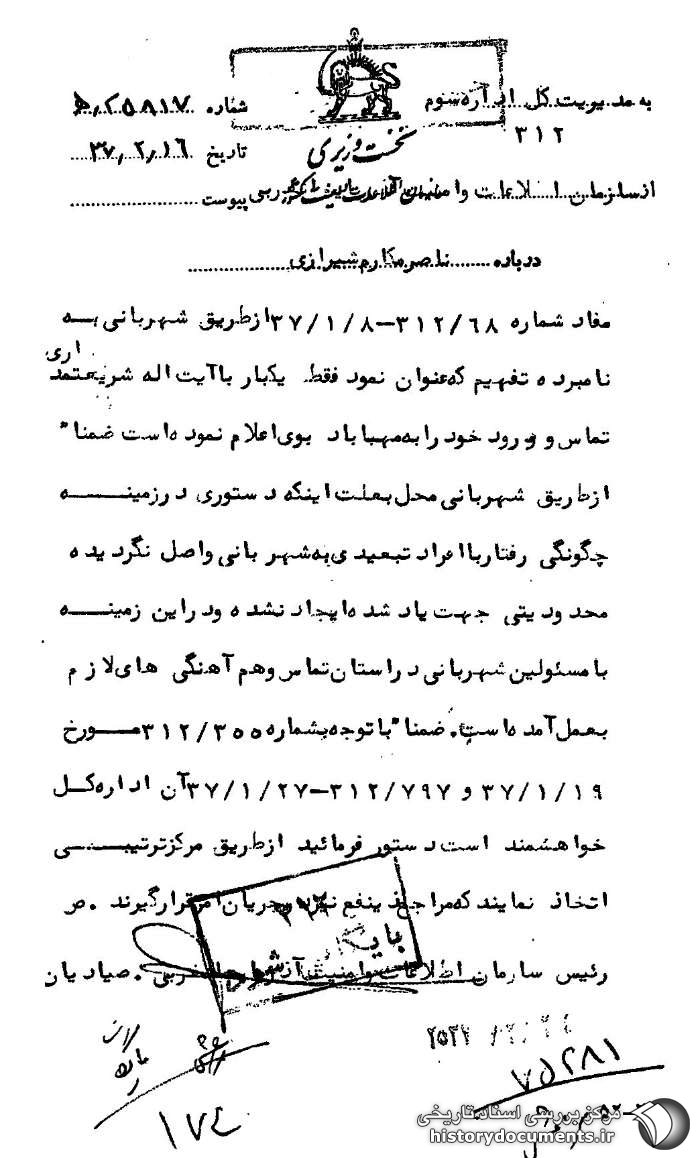 به مدیریت کل اداره سوم
۳۱۲
نخست وزیری
شماره ۲۵۸۱۷/ه
تاریخ ۳۷/۲/۱۶
از سازمان اطلاعات و امنیت
پیوست
درباره ناصر مکارم شیرازی
مفاد شماره ۳۱۲/۶۸–۳۷/۱/۸ ازطریق شهربانی به
نامبرده تفهیم که عنوان نمود فقط یکبار با آیت اله شریعتمداری
تماس و ورود خود را به مهاباد بوی اعلام نموده است ضمنا"
ازطریق شهربانی محل بعلت اینکه دستوری در زمینه
چگونگی رفتار با افراد تبعیدی به شهربانی واصل نگردیده
محدودیتی جهت یاد شده ایجاد نشده و در این زمینه
با مسئولین شهربانی در استان تماس و هم آهنگی های لازم
بعمل آمده است. ضمنا" با توجه بشماره ۳۱۲/۳۵۵ مورخ
۳۷/۱/۱۹ و ۳۱۲/۷۹۷–۳۷/۱/۲۷ آن اداره کل
خواهشمند است دستور فرمائید ازطریق مرکز ترتیبی
اتخاذ نمایند که مراجع ذینفع نیز در جریان امر قرار گیرند . ص
رئیس سازمان اطلاعات و امنیت آذربایجان غربی . صیادیان
۳۱۲
۷۵۲۸۱
۱۷۴
مرکز بررسی اسناد تاریخی
historydocuments.ir